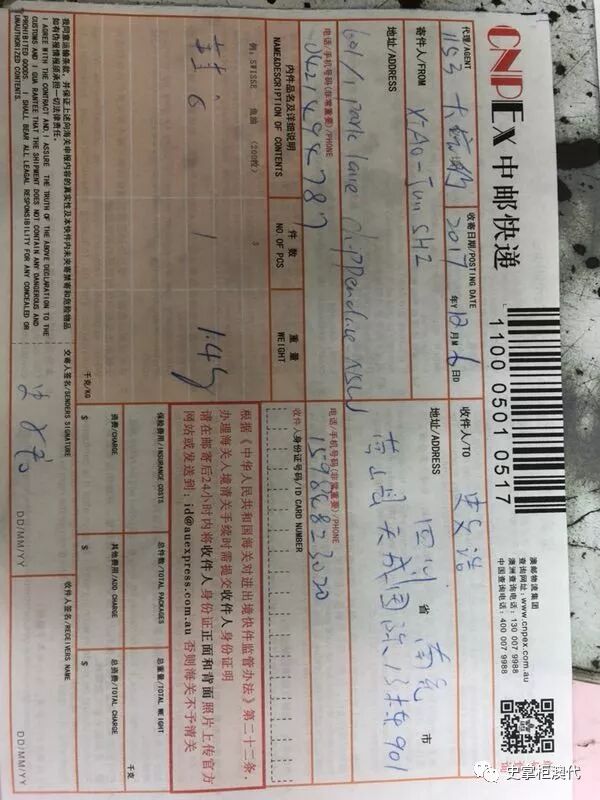 CNPEX 中邮快递
1100 0501 0517
澳邮物流集团
查询网址：www.cnpex.com.au
澳洲查询电话：130 007 9988
中国查询电话：400 007 9988
代理/AGENT
1153
收寄日期/POSTING DATE
2017 年Y 12 月M 6 日D
寄件人/FROM
XIAO-Jun SHI
收件人/TO
地址/ADDRESS
601/1 park lane chippendale NSW
地址/ADDRESS
四川 省 南充 市
电话/手机号码(非常重要)/PHONE
0421494787
电话/手机号码(非常重要)/PHONE
15986823020
收件人身份证号码/ID CARD NUMBER
内件品名及详细说明
NAME&DESCRIPTION OF CONTENTS
件数
NO OF PCS
重量
WEIGHT
例：SWISSE 鱼油 (200粒) 3
鞋 6 1 1.4
千克/KG
根据《中华人民共和国海关对进出境快件监管办法》第二十二条，
办理海关入境清关手续时需提交收件人身份证明
请在邮寄后24小时内将收件人身份证正面和背面照片上传官方
网站或发送到：id@auexpress.com.au 否则海关不予清关
保险费用/INSURANCE COSTS
总件数/TOTAL PACKAGES
总重量/TOTAL WEIGHT
千克
资费/CHARGE
其他费用/ADD CHARGE
总资费/TOTAL CHARGE
$
$
$
我同意运单条款，并保证上述向海关申报内容的真实性及本快件内未夹寄禁寄和危险物品
如有伪报情报须承担一切法律责任。
I AGREE WITH THE CONTRACT AND, I ASSURE THE TRUTH OF THE ABOVE DECLARATION TO THE
CUSTOMS AND I GUARANTEE THAT THE SHIPMENT DOES NOT CONTAIN ANY DANGEROUS AND
PROHIBITED GOODS. I SHALL BEAR ALL LEAGAL RESPONSIBILITY FOR ANY CONCEALED OR
UNAUTHORIZED CONTENTS.
交寄人签名/SENDERS SIGNATURE
DD/MM/YY
收件人签名/RECEIVERS NAME
DD/MM/YY
史掌柜澳代